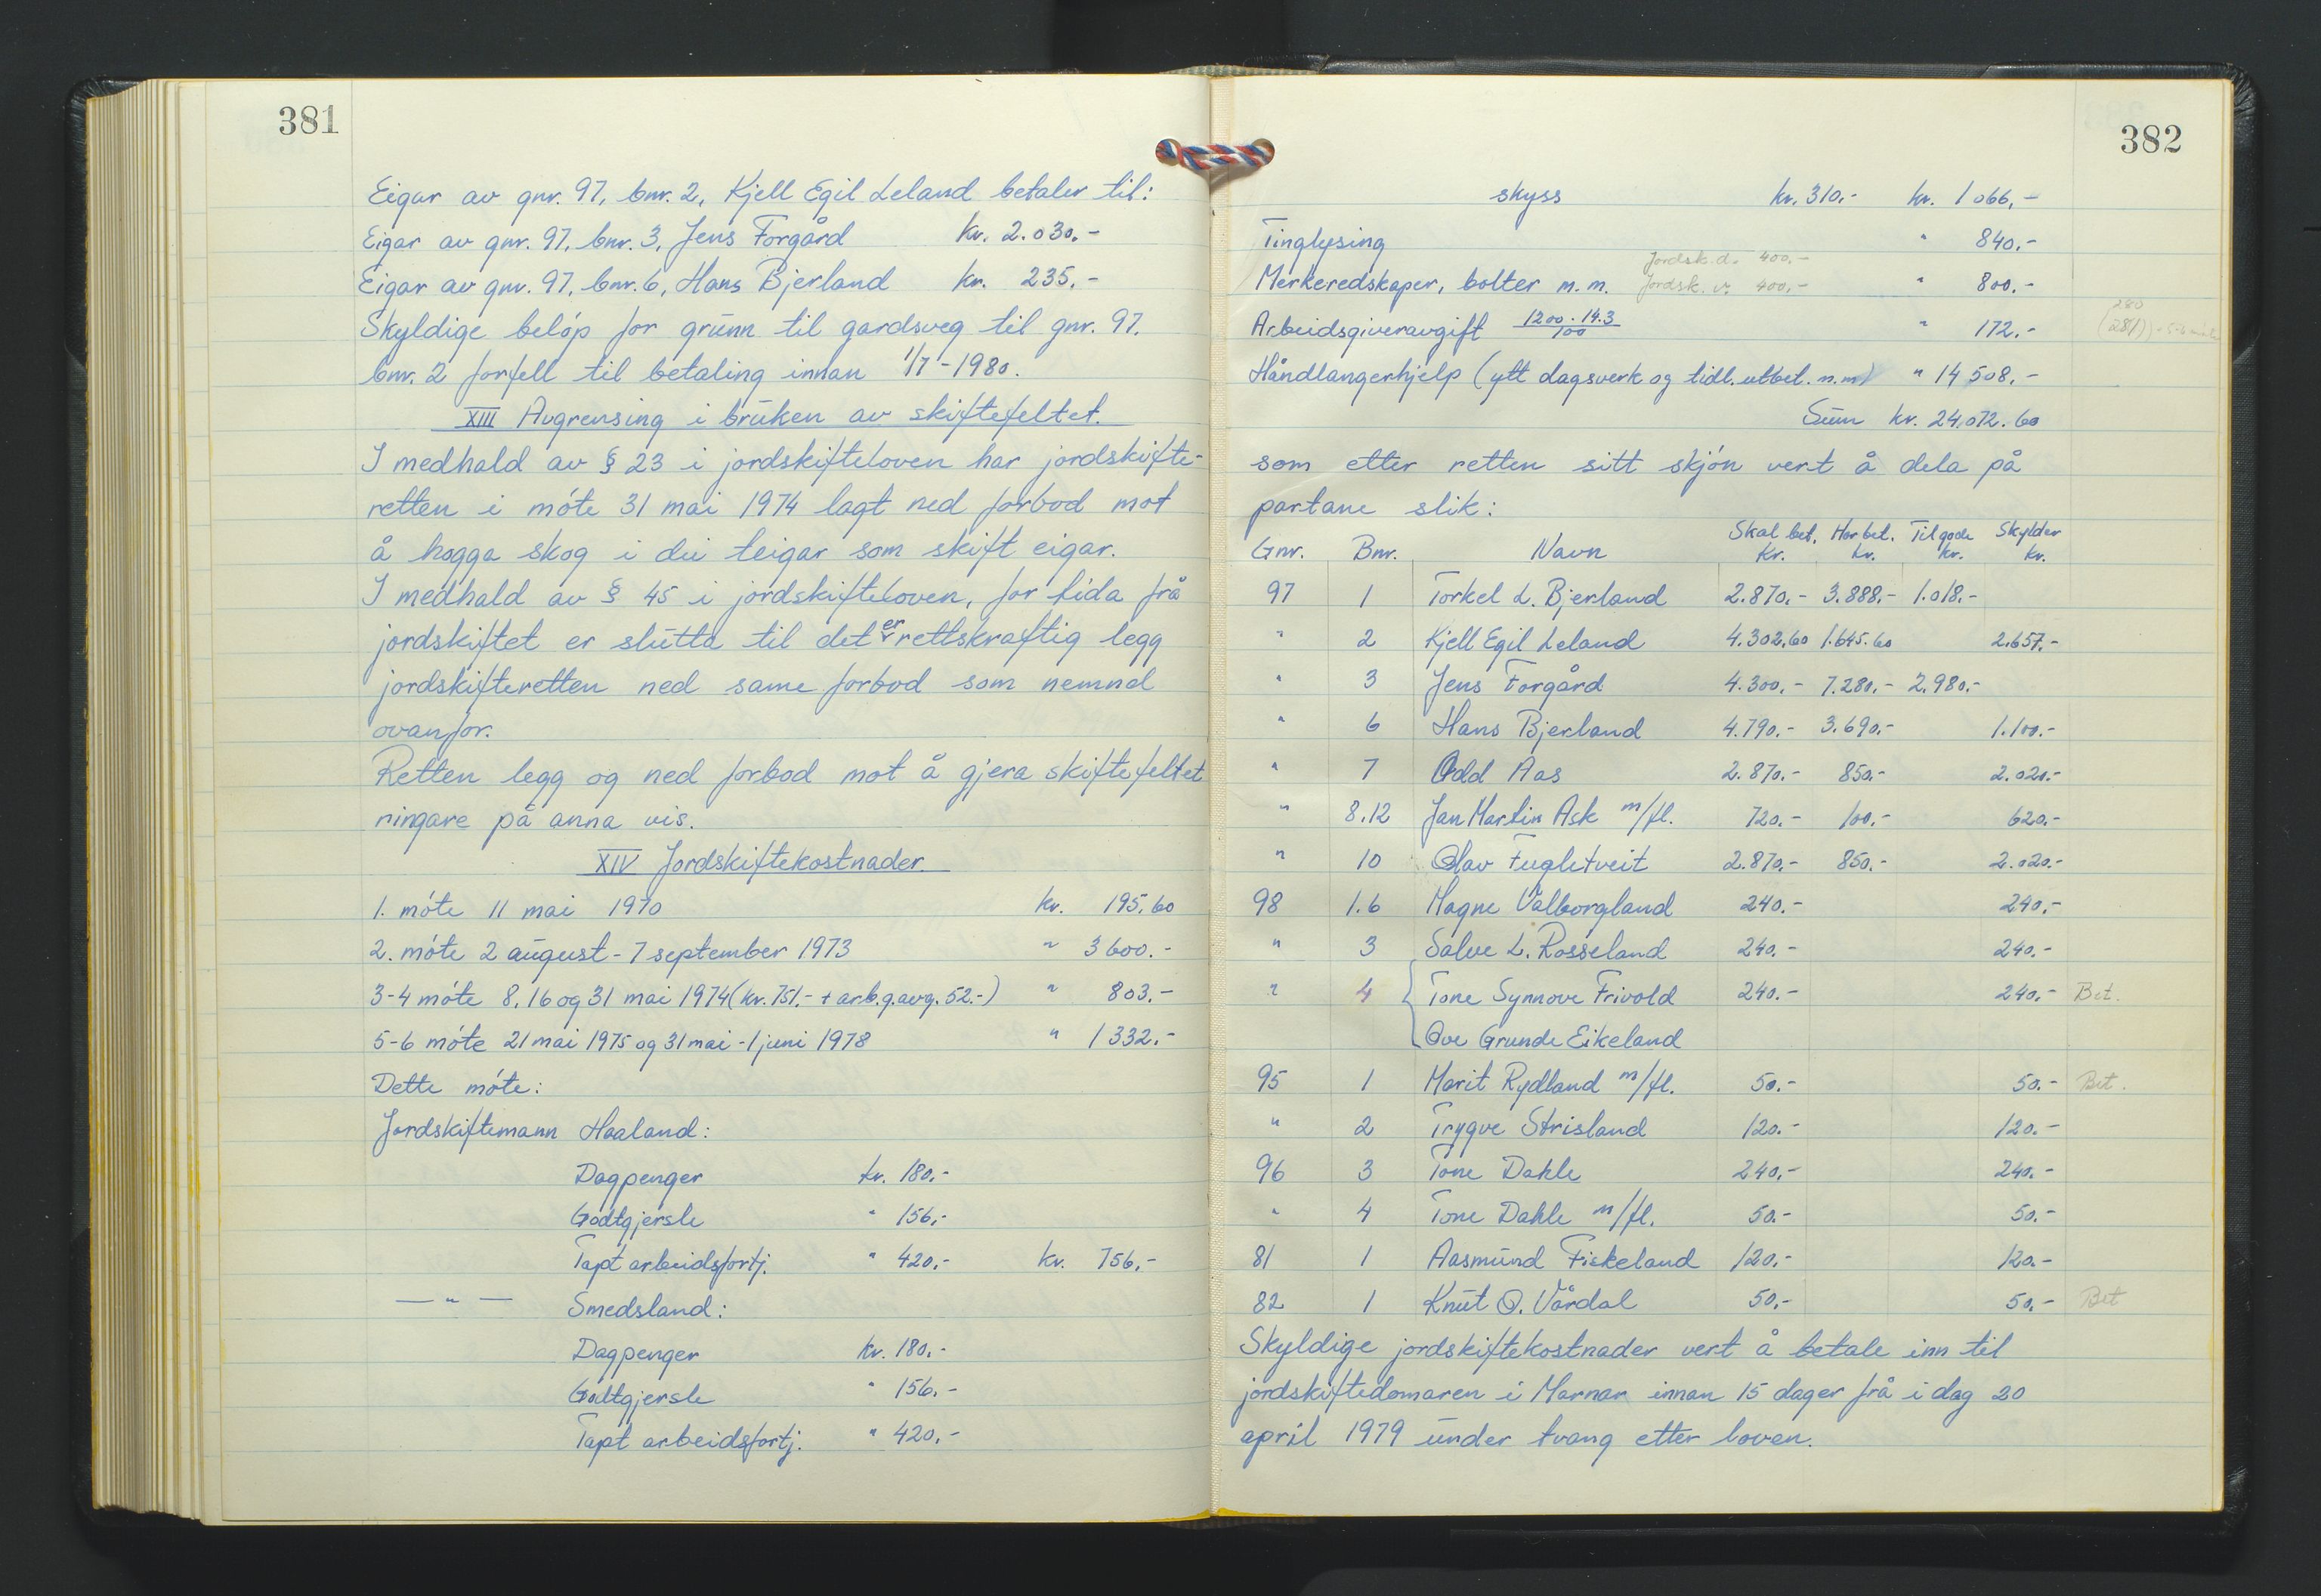 381
Eigar av gnr. 97, bnr. 2, Kjell Egil Leland betaler til:
Eigar av gnr. 97, bnr. 3, Jens Forgård kr. 2.030.-
Eigar av gnr. 97, bnr. 6, Hans Bjerland kr. 235.-
Skyldige beløp for grunn til gardsveg til gnr. 97.
bnr. 2 forfell til betaling innan 1/7-1980.
XIII Avgrensing i bruken av skiftefeltet.
I medhald av § 23 i jordskifteloven har jordskifte-
retten i møte 31 mai 1974 lagt ned forbod mot
å hogga skog i dei teigar som skift eigar.
I medhald av § 45 i jordskifteloven, for tida frå
jordskiftet er slutta til det er rettskraftig legg
jordskifteretten ned same forbod som nemnd
ovanfor.
Retten legg og ned forbod mot å gjera skiftefeltet
ringare på anna vis.
XIV Jordskiftekostnader.
1. møte 11 mai 1970 kr. 195.60
2. møte 2 august - 7 september 1973 " 3600.-
3-4 møte 8, 16 og 31 mai 1974 (kr. 751.- + arb.g.avg. 52.-) " 803.-
5-6 møte 21 mai 1975 og 31 mai - 1 juni 1978 " 1332.-
Dette møte:
Jordskiftemann Haaland:
Dagpenger kr. 180.-
Godtgjersle " 156.-
Tapt arbeidsfortj. " 420.- kr. 756.-
— " — Smedsland:
Dagpenger kr. 180.-
Godtgjersle " 156.-
Tapt arbeidsfortj. " 420.-
382
skyss kr. 310.- kr. 1066.-
Tinglysing " 840.-
Jordsk.d. 400.-
Merkeredskaper, bolter m.m. Jordsk.v. 400.- " 800.-
280
Arbeidsgiveravgift 1200 · 14.3 / 100 " 172.- (281)
Håndlangerhjelp (ytt dagsverk og tidl. utbet. m.m) " 14508.-
Sum kr. 24.072.60
som etter retten sitt skjøn vert å dela på
partane slik:
Gnr. Bnr. Navn Skal bet. Kr. Har bet. kr. Tilgode kr. Skylder kr.
97 1 Torkel L. Bjerland 2.870.- 3.888.- 1.018.-
" 2 Kjell Egil Leland 4.302.60 1.645.60 2.657.-
" 3 Jens Forgård 4.300.- 7.280.- 2.980.-
" 6 Hans Bjerland 4.790.- 3.690.- 1.100.-
" 7 Odd Aas 2.870.- 850.- 2.020.-
" 8.12 Jan Martin Ask m/fl. 720.- 100.- 620.-
" 10 Olav Fugletveit 2.870.- 850.- 2.020.-
98 1.6 Magne Valborgland 240.- 240.-
" 3 Salve L. Rosseland 240.- 240.-
" 4 Tone Synnove Frivold 240.- 240.- Bet.
Ove Grunde Eikeland
95 1 Marit Rydland m/fl. 50.- 50.- Bet.
" 2 Trygve Strisland 120.- 120.-
96 3 Tone Dahle 240.- 240.-
" 4 Tone Dahle m/fl. 50.- 50.-
81 1 Aasmund Fiskeland 120.- 120.-
82 1 Knut O. Vårdal 50.- 50.- Bet
Skyldige jordskiftekostnader vert å betale inn til
jordskiftedomaren i Marnar innan 15 dager frå i dag 20
april 1979 under tvang etter loven.